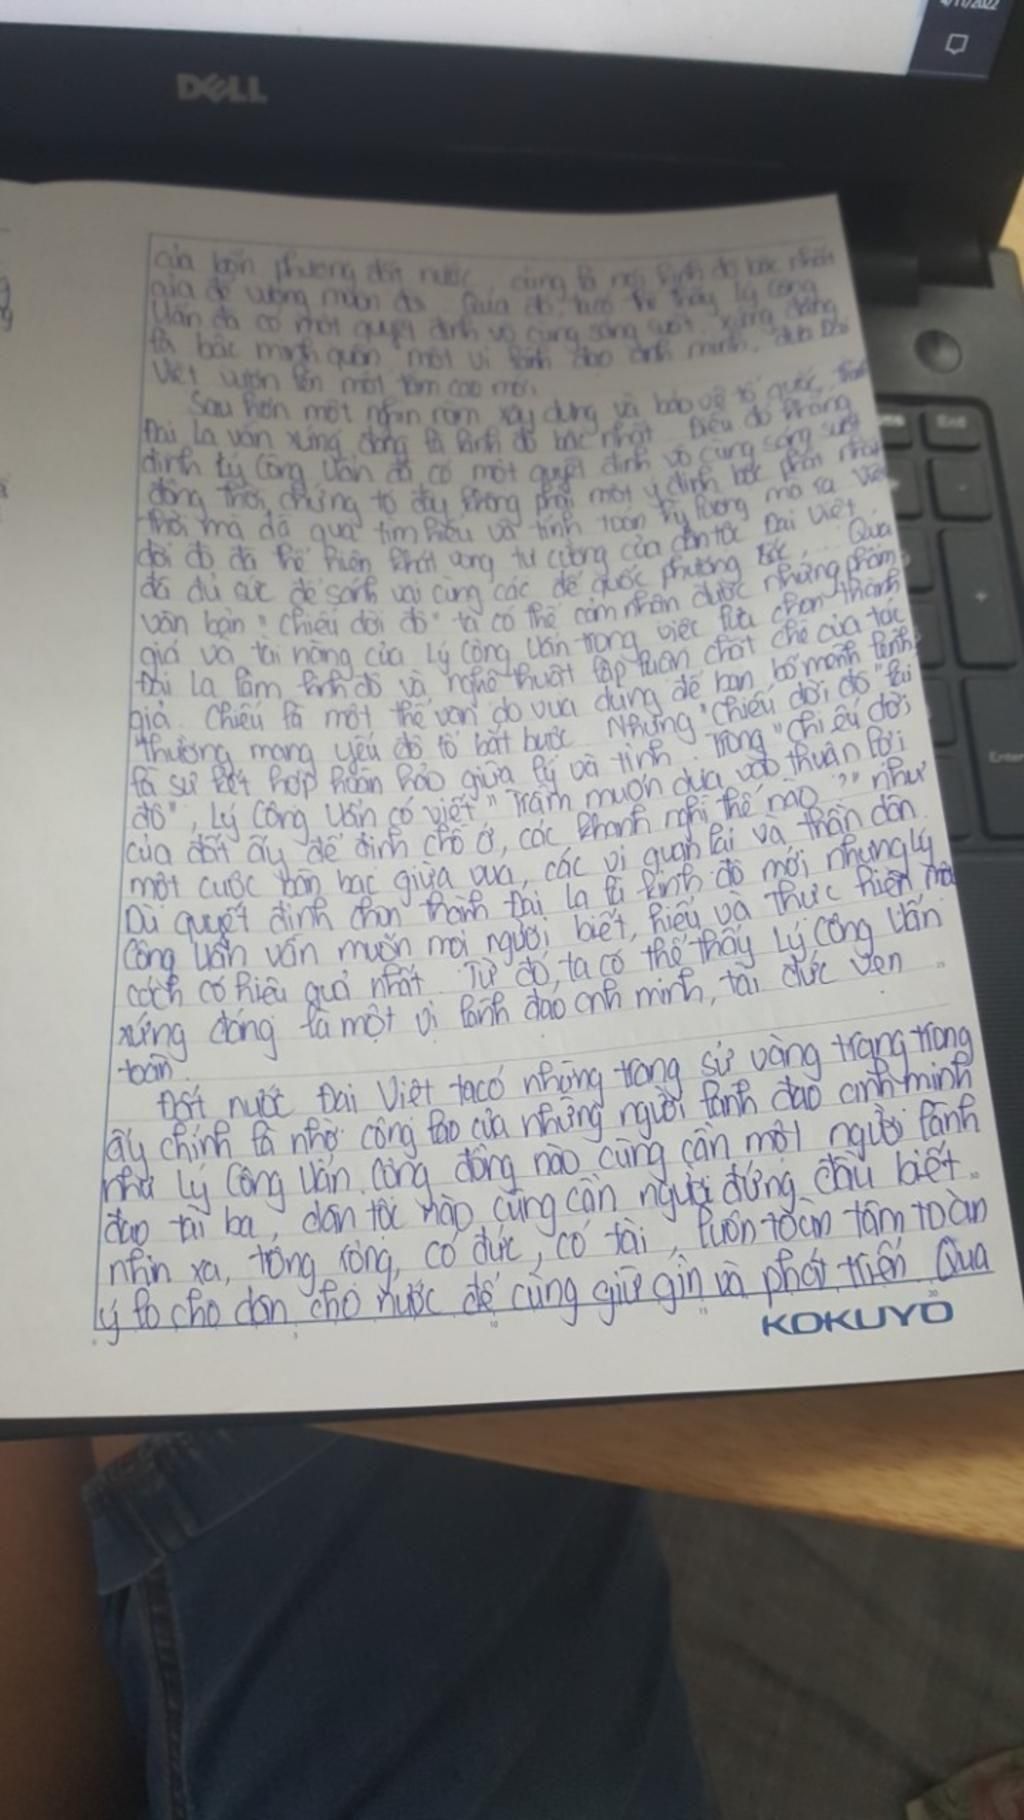 4/11/2022
DELL
của bốn phương đất nước, cũng là nơi kinh đô bậc nhất
của đế vương muôn đời. Qua đó, ta có thể thấy Lý Công
Uẩn đã có một quyết định vô cùng sáng suốt, xứng đáng
là bậc minh quân, một vị lãnh đạo anh minh, đưa Đại
Việt vươn lên một tầm cao mới.
Sau hơn một nghìn năm xây dựng và bảo vệ tổ quốc, thành
Đại La vẫn xứng đáng là kinh đô bậc nhất. Điều đó khẳng
định Lý Công Uẩn đã có một quyết định vô cùng sáng suốt
đồng thời, chứng tỏ đây không phải một ý định bộc phát nhất
thời mà đã qua tìm hiểu và tính toán kỹ lưỡng mà ra. Việc
dời đô đã thể hiện khát vọng tự cường của dân tộc Đại Việt
đã đủ sức để sánh vai cùng các đế quốc phương Bắc,... Qua
văn bản "Chiếu dời đô" ta có thể cảm nhận được những phẩm
giá và tài năng của Lý Công Uẩn trong việc lựa chọn thành
Đại La làm kinh đô và nghệ thuật lập luận chặt chẽ của tác
giả. Chiếu là một thể văn do vua dùng để ban bố mệnh lệnh
thường mang yếu tố bắt buộc. Nhưng "Chiếu dời đô" lại
là sự kết hợp hoàn hảo giữa lý và tình. Trong "Chiếu dời
đô", Lý Công Uẩn có viết "Trẫm muốn dựa vào thuận lợi
của đất ấy để định chỗ ở, các khanh nghĩ thế nào?" như
một cuộc bàn bạc giữa vua, các vị quan lại và thần dân.
Dù quyết định chọn thành Đại La là kinh đô mới nhưng Lý
Công Uẩn vẫn muốn mọi người biết, hiểu và thực hiện một
cách có hiệu quả nhất. Từ đó, ta có thể thấy Lý Công Uẩn
xứng đáng là một vị lãnh đạo anh minh, tài đức vẹn
toàn.
Đất nước Đại Việt ta có những trang sử vàng trang trọng
ấy chính là nhờ công lao của những người lãnh đạo anh minh
như Lý Công Uẩn. Cộng đồng nào cũng cần một người lãnh
đạo tài ba, dân tộc nào cũng cần người đứng đầu biết
nhìn xa, trông rộng, có đức, có tài, luôn toàn tâm toàn
ý lo cho dân cho nước để cùng giữ gìn và phát triển. Qua
KOKUYO